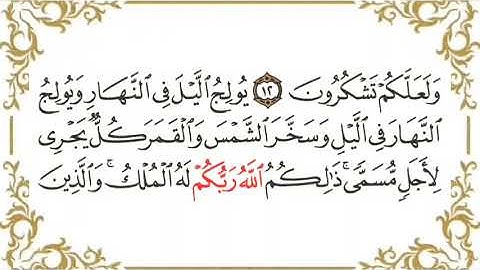 وَلَعَلَّكُمْ تَشْكُرُونَ ١٢ يُولِجُ الَّيْلَ فِى النَّهَارِ وَيُولِجُ
النَّهَارَ فِى الَّيْلِ وَسَخَّرَ الشَّمْسَ وَالْقَمَرَ كُلٌّ يَجْرِى
لِأَجَلٍ مُّسَمًّى ۚ ذَٰلِكُمُ اللَّهُ رَبُّكُمْ لَهُ الْمُلْكُ ۚ وَالَّذِينَ